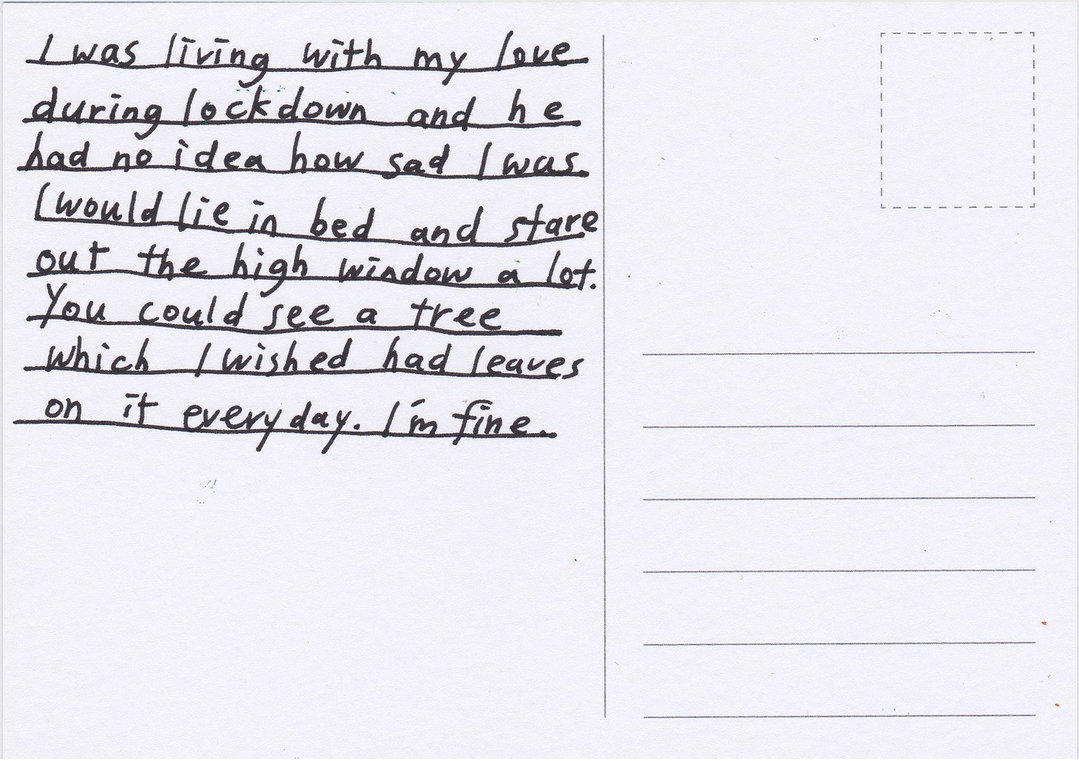 I was living with my love
during lockdown and he
had no idea how sad I was.
I would lie in bed and stare
out the high window a lot.
You could see a tree
which I wished had leaves
on it everyday. I'm fine.